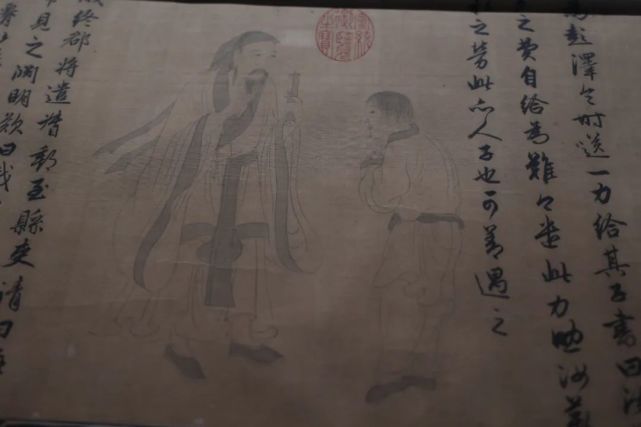 彭澤令時送一力給其子書曰汝
之費自給為難今遣此力助汝薪
之勞此亦人子也可善遇之
歲終郡將遣督郵至縣吏請曰應
見之淵明歎曰我